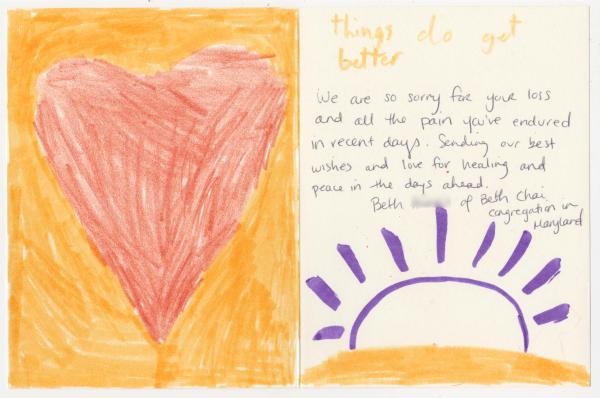 things do get
better
We are so sorry for your loss
and all the pain you've endured
in recent days. Sending our best
wishes and love for healing and
peace in the days ahead.
Beth of Beth Chai
congregation in
Maryland